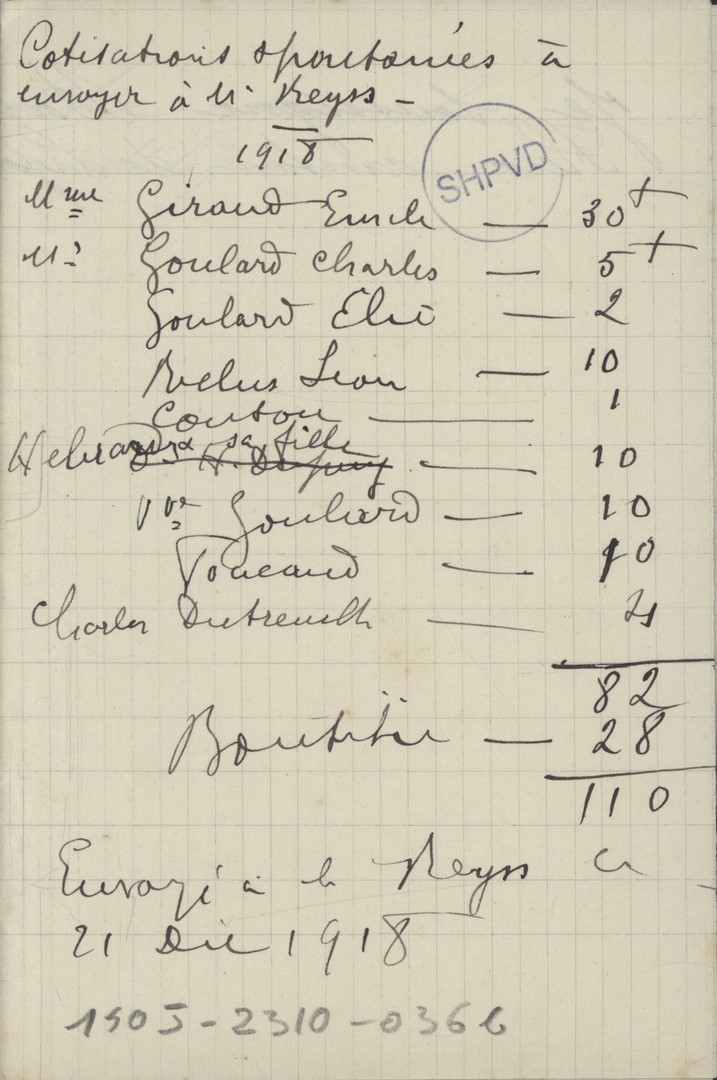 Cotisations spontanées à
envoyer à Mr Reyss –
1918
SHPVD
Mme Giraud Emile — 30 +
Mr Goulard Charles — 5 +
Goulard Elie — 2
Léon — 10
Couton — 1
Hebrard & sa fille — 10
Vve Goulard — 10
Toucaud — 10
Charles Dutreuilh — 4
82
— 28
110
Envoyé à Mr Reyss ce
21 Déc 1918
1905-2310-0366